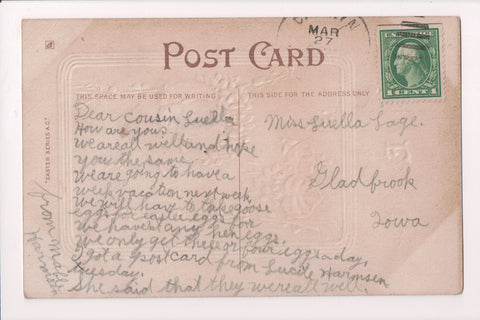 MAR
27
POST CARD
U.S. POSTAGE
1 CENT 1
THIS SPACE MAY BE USED FOR WRITING
THIS SIDE FOR THE ADDRESS ONLY
"EASTER SERIES A.C."
Dear Cousin Luella
How are you.
we are all well and hope
you the same.
we are going to have a
week vacation next week
we will have to take goose
eggs for easter eggs for
we haven't any hen eggs.
we only get three or four eggs a day.
I got a postcard from Lucile
Tuesday.
She said that they were all well.
Miss Luella Lage.
Gladbrook
Iowa